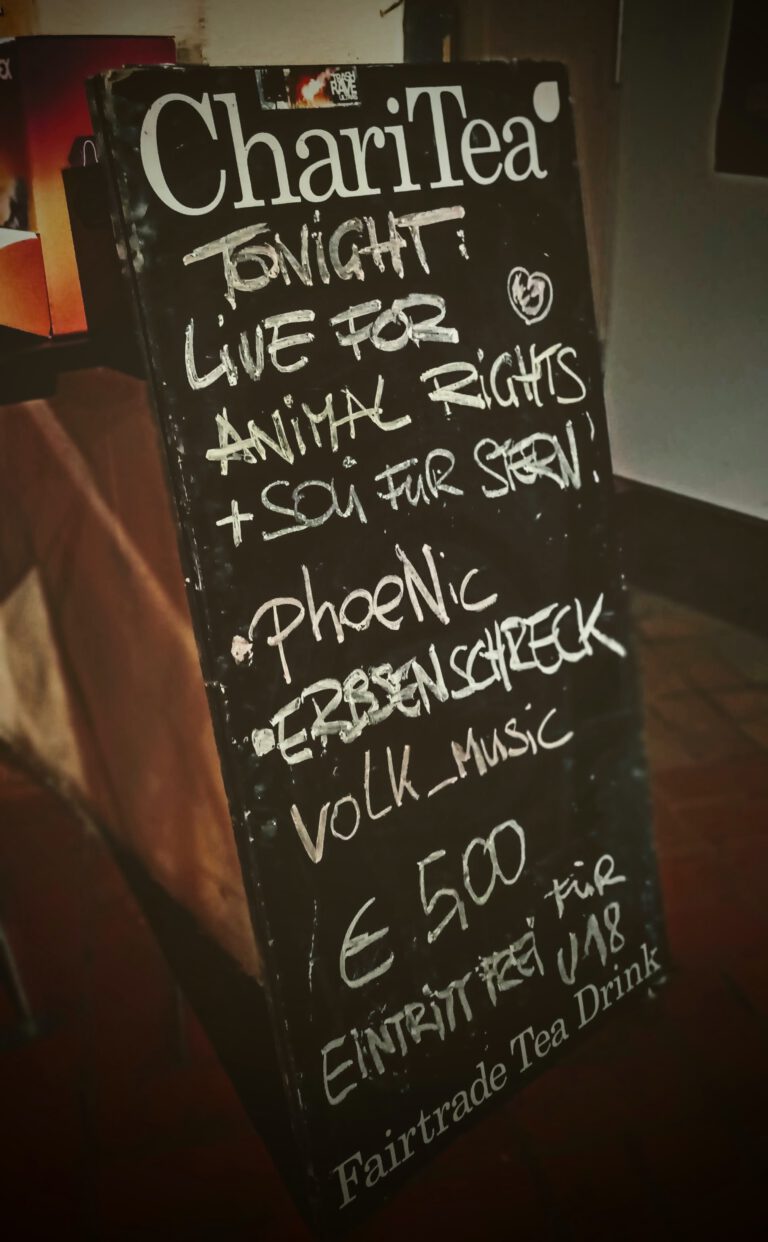 TRASH
RAVE
ChariTea
TONiGHT:
LiVE FOR
ANiMAL RiGHTS
+ SOLi FüR STERN!
• PhoeNic
• ERBSENSCHRECK
VOLK_MUSiC
€ 5,00
EiNTRiTT FREi FüR
U18
Fairtrade Tea Drink